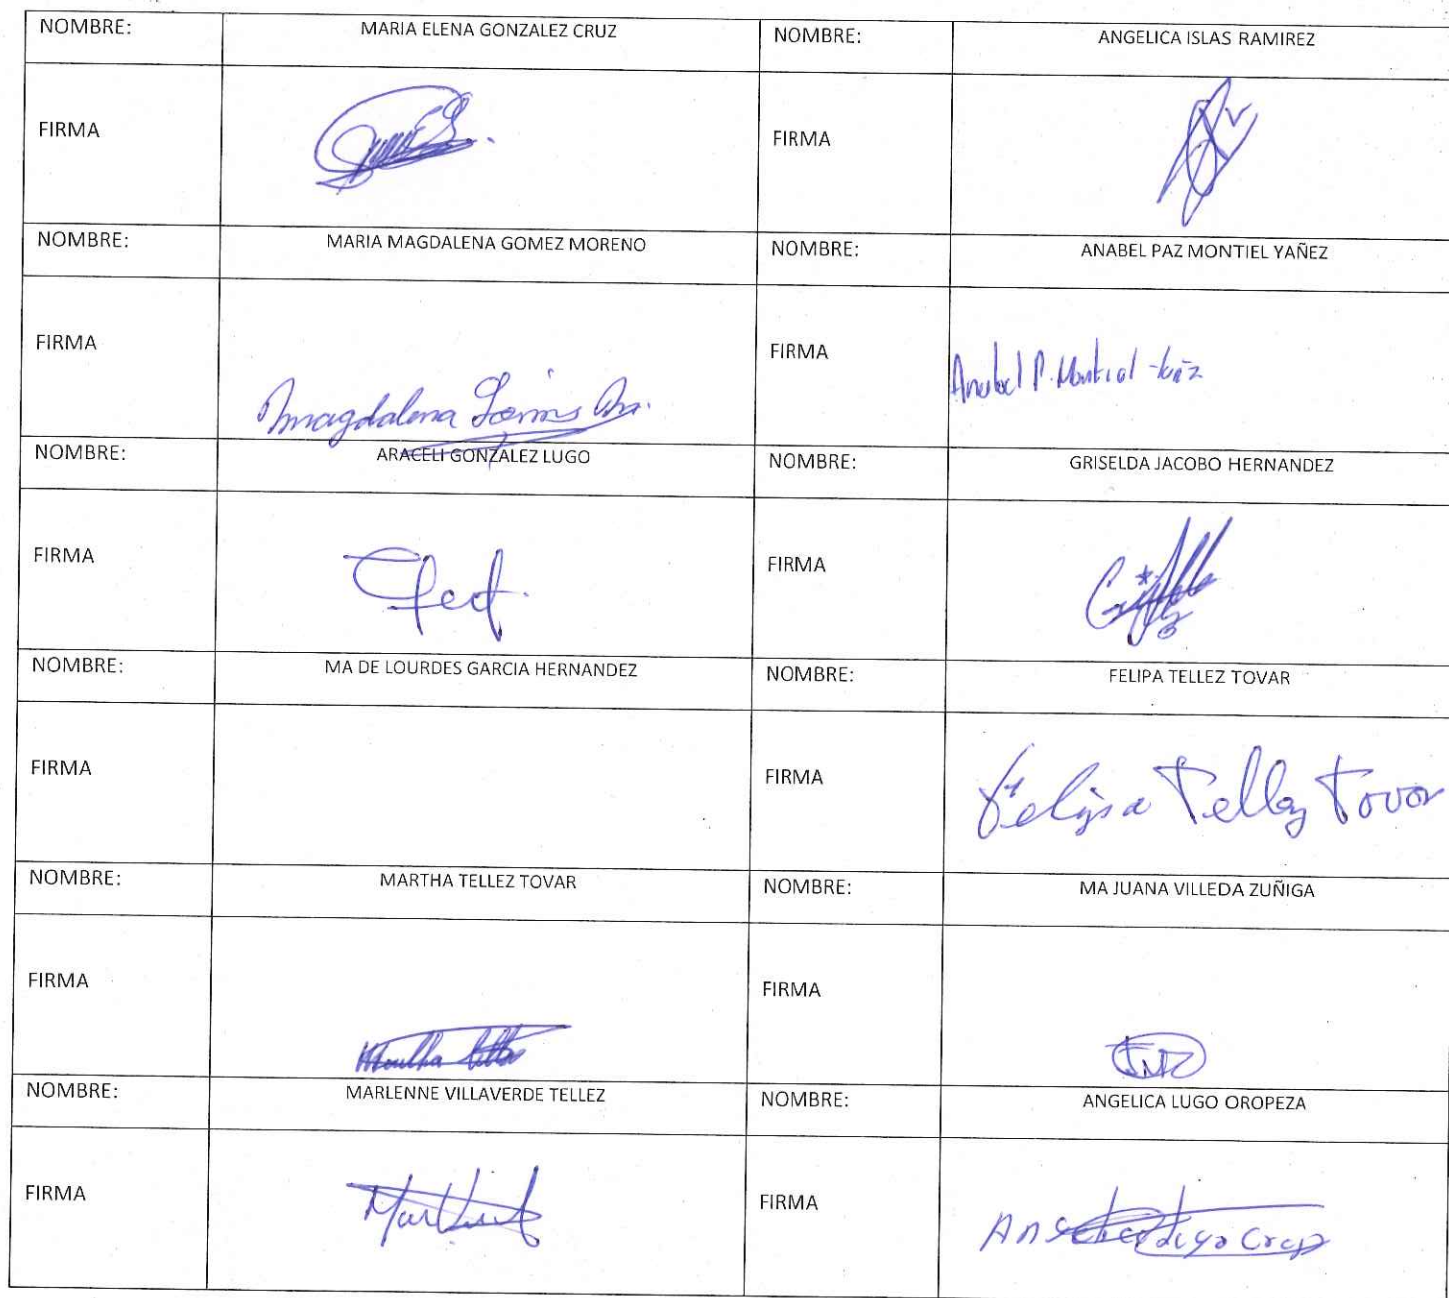 NOMBRE: MARIA ELENA GONZALEZ CRUZ NOMBRE: ANGELICA ISLAS RAMIREZ
FIRMA FIRMA
NOMBRE: MARIA MAGDALENA GOMEZ MORENO NOMBRE: ANABEL PAZ MONTIEL YAÑEZ
FIRMA Magdalena FIRMA Anabel P. Montiel
NOMBRE: ARACELI GONZALEZ LUGO NOMBRE: GRISELDA JACOBO HERNANDEZ
FIRMA FIRMA
NOMBRE: MA DE LOURDES GARCIA HERNANDEZ NOMBRE: FELIPA TELLEZ TOVAR
FIRMA FIRMA Felipa Tellez Tovar
NOMBRE: MARTHA TELLEZ TOVAR NOMBRE: MA JUANA VILLEDA ZUÑIGA
FIRMA FIRMA
NOMBRE: MARLENNE VILLAVERDE TELLEZ NOMBRE: ANGELICA LUGO OROPEZA
FIRMA FIRMA